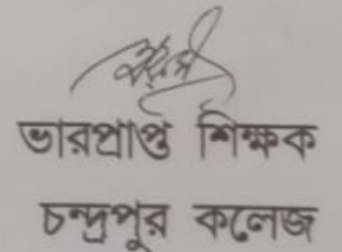 ভারপ্রাপ্ত শিক্ষক
চন্দ্রপুর কলেজ